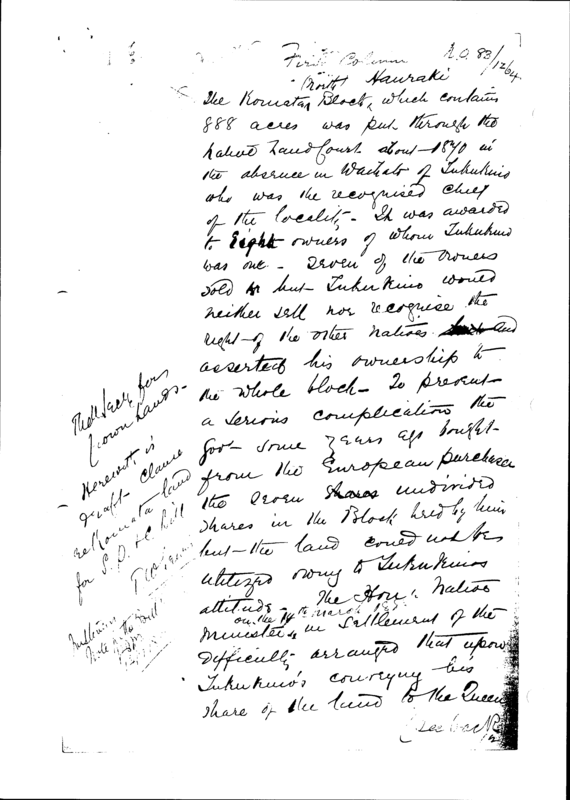 First Column N.O. 83/1204
North Hauraki
The Komata Block, which contains
888 acres was put through the
Native Land Court about 1870 in
the absence in Waikato of Tukukino
who was the recognised chief
of the locality - It was awarded
to Eight owners of whom Tukukino
was one - Seven of the Owners
sold but Tukukino would
neither sell nor recognise the
right of the other Natives and
asserted his ownership to
the whole block - To prevent
a serious complication the
Govt some years ago bought
from the European purchaser
the seven shares undivided
shares in the Block held by him
but the land could not be
utilized owing to Tukukino's
attitude - The Hon. Native
on the 14th March
Minister in Settlement of the
difficulty arranged that upon
Tukukino's conveying his
share of the land to the Queen
(See back
The Secy for
Crown Lands -
Herewith is
draft clause
re Komata land
for S. P. & C. Bill